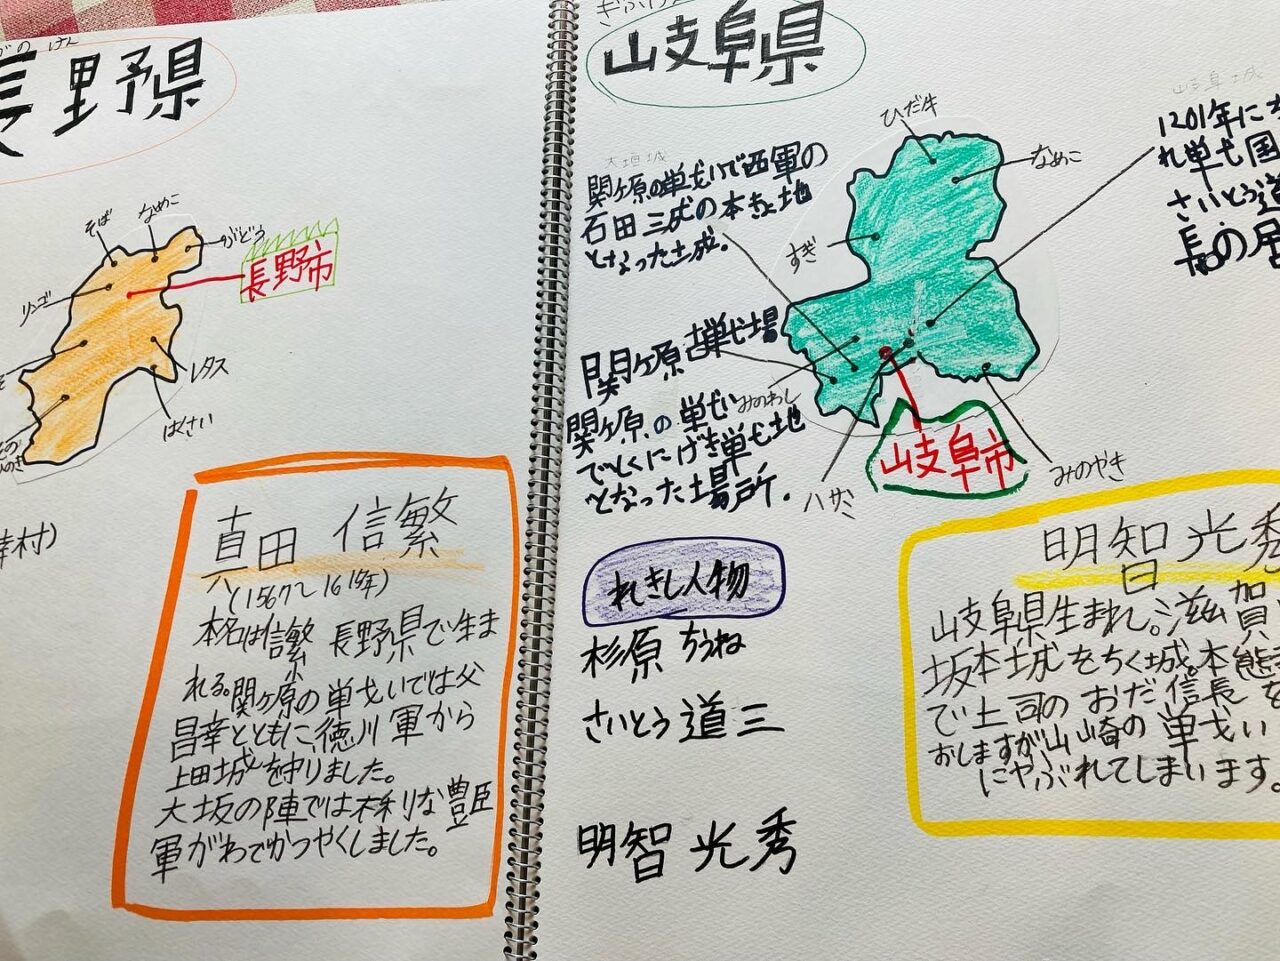 がの けん
長野県
そば
なめこ
ぶどう
リンゴ
長野市
レタス
はくさい
ひのき
幸村)
真田 信繁
(1567〜1615年)
本名は信繁 長野県で生ま
れる。関ヶ原の戦いでは父
昌幸とともに徳川軍から
上田城を守りました。
大坂の陣では不利な豊臣
軍がわでかつやくしました。
ぎふけん
岐阜県
大垣城
関ヶ原の戦いで西軍の
石田三成の本きょ地
となった土成。
ひだ牛
なめこ
すぎ
岐阜城
1201年に
れ戦国
さいとう道
長の居
関ヶ原古戦場
関ヶ原の戦い
でとくにげき戦地
となった場所.
みのわし
ハサミ
岐阜市
みのやき
れきし人物
杉原 ちうね
さいとう道三
明智 光秀
明智光秀
岐阜県生まれ。滋賀
坂本城をちく城。本能
で上司のおだ信長を
おしますが山崎の戦い
にやぶれてしまいます。